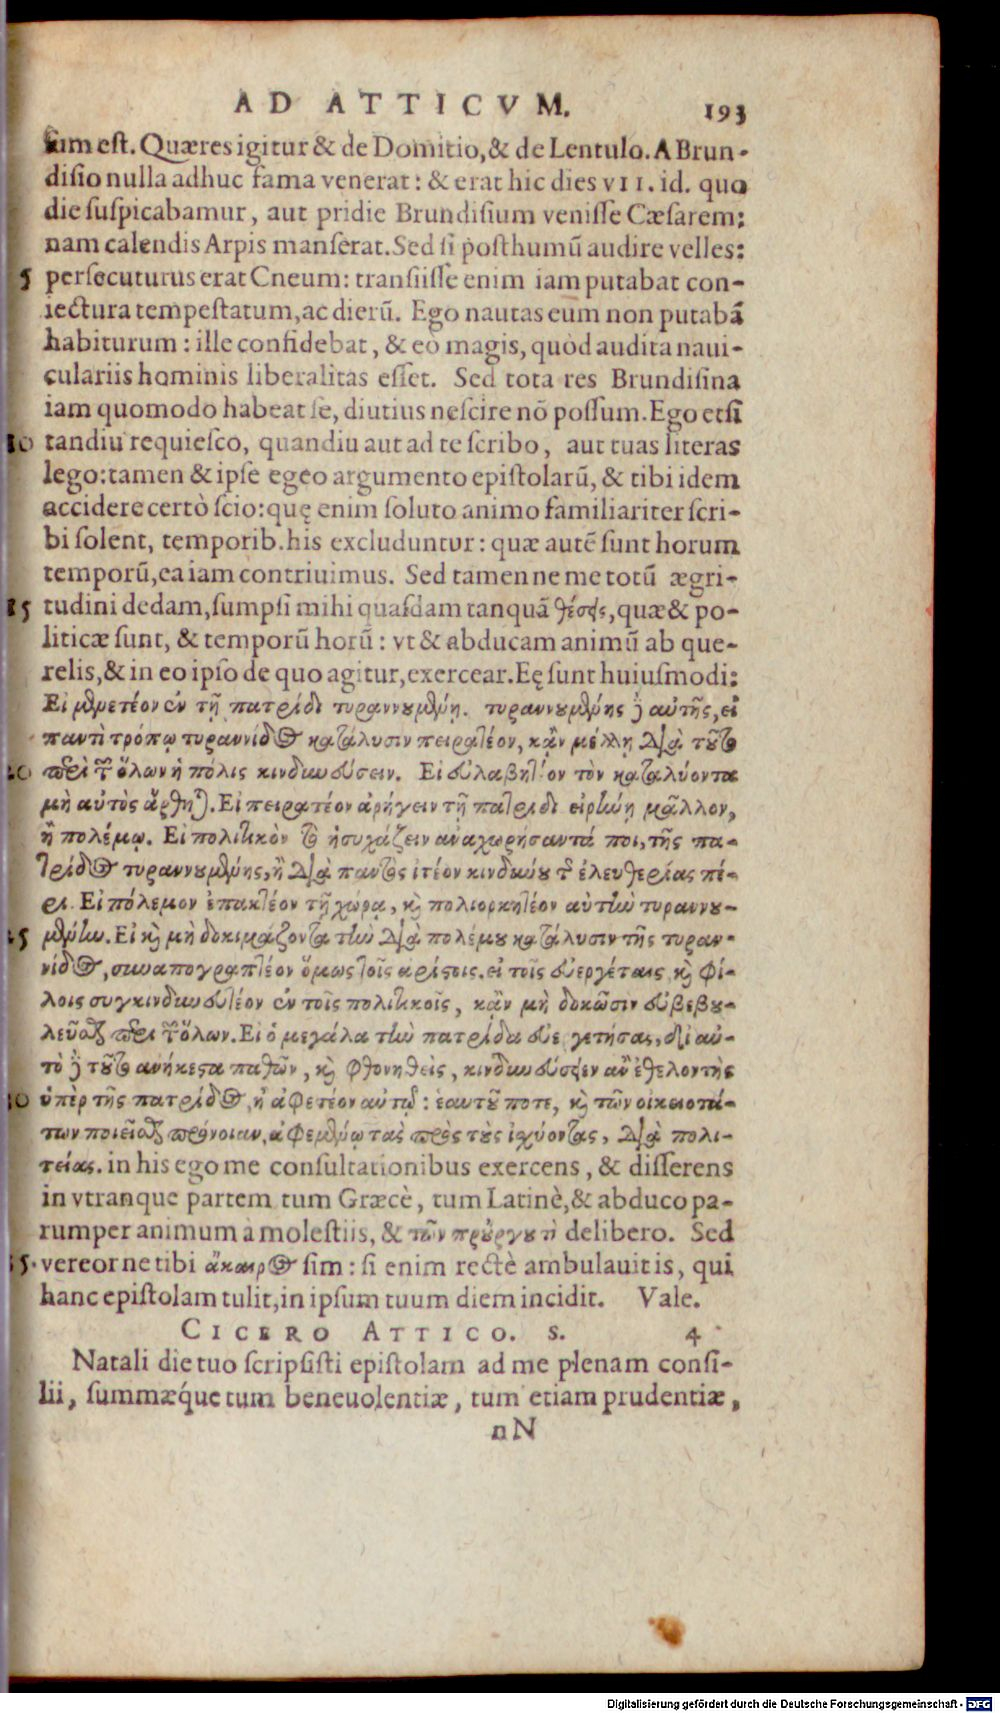 AD ATTICVM. 193
sum est. Quæres igitur & de Domitio, & de Lentulo. A Brun-
disio nulla adhuc fama venerat: & erat hic dies VII. id. quo
die suspicabamur, aut pridie Brundisium venisse Cæsarem;
nam calendis Arpis manserat. Sed si posthumũ audire velles:
5 persecuturus erat Cneum: transiisse enim iam putabat con-
iectura tempestatum, ac dierũ. Ego nautas eum non putabã
habiturum: ille confidebat, & eò magis, quòd audita naui-
culariis hominis liberalitas esset. Sed tota res Brundisina
iam quomodo habeat se, diutius nescire nõ possum. Ego etsi
10 tandiu requiesco, quandiu aut ad te scribo, aut tuas literas
lego: tamen & ipse egeo argumento epistolarũ, & tibi idem
accidere certò scio: quę enim soluto animo familiariter scri-
bi solent, temporib. his excluduntur: quæ autẽ sunt horum
temporũ, ea iam contriuimus. Sed tamen ne me totũ ægri-
15 tudini dedam, sumpsi mihi quasdam tanquã θέσεις, quæ & po-
liticæ sunt, & temporũ horũ: vt & abducam animũ ab que-
relis, & in eo ipso de quo agitur, exercear. Eę sunt huiusmodi:
Εἰ μενετέον ἐν τῇ πατρίδι τυραννουμένῃ. τυραννουμένης δὲ αὐτῆς, εἰ
παντὶ τρόπῳ τυραννίδος κατάλυσιν πειρατέον, κἂν μέλλῃ διὰ τοῦτο
20 περὶ τῶν ὅλων ἡ πόλις κινδυνεύσειν. Εἰ εὐλαβητέον τὸν καταλύοντα
μὴ αὐτὸς ἄρθηται. Εἰ πειρατέον ἀρήγειν τῇ πατρίδι εἰρήνῃ μᾶλλον,
ἢ πολέμῳ. Εἰ πολιτικὸν τὸ ἡσυχάζειν ἀναχωρήσαντά ποι, τῆς πα-
τρίδος τυραννουμένης, ἢ διὰ παντὸς ἰτέον κινδύνου τῆς ἐλευθερίας πέ-
ρι. Εἰ πόλεμον ἐπακτέον τῇ χώρᾳ, καὶ πολιορκητέον αὐτὴν τυραννου-
25 μένην. Εἰ καὶ μὴ δοκιμάζοντα τὴν διὰ πολέμου κατάλυσιν τῆς τυραν-
νίδος, συναπογραπτέον ὅμως τοῖς ἀρίστοις. εἰ τοῖς εὐεργέταις, καὶ φί-
λοις συγκινδυνευτέον ἐν τοῖς πολιτικοῖς, κἂν μὴ δοκῶσιν εὐβεβου-
λεῦσθαι περὶ τῶν ὅλων. Εἰ ὁ μεγάλα τὴν πατρίδα εὐεργετήσας, δι' αὐ-
τὸ δὲ τοῦτο ἀνήκεστα παθῶν, καὶ φθονηθεὶς, κινδυνεύσειεν ἂν ἐθελοντὴς
30 ὑπὲρ τῆς πατρίδος, ἢ ἀφετέον αὐτῷ: ἑαυτοῦ ποτε, καὶ τῶν οἰκειοτά-
των ποιεῖσθαι πρόνοιαν, ἀφεμένῳ τὰς πρὸς τοὺς ἰχύοντας, διὰ πολι-
τείας. in his ego me consultationibus exercens, & disserens
in vtranque partem tum Græcè, tum Latinè, & abduco pa-
rumper animum à molestiis, & τῶν προὔργου τὶ delibero. Sed
35 vereor ne tibi ἄκαιρος sim: si enim rectè ambulauit is, qui
hanc epistolam tulit, in ipsum tuum diem incidit. Vale.
CICERO ATTICO. S. 4
Natali die tuo scripsisti epistolam ad me plenam consi-
lii, summæq́ue tum beneuolentiæ, tum etiam prudentiæ,
nN
Digitalisierung gefördert durch die Deutsche Forschungsgemeinschaft - DFG